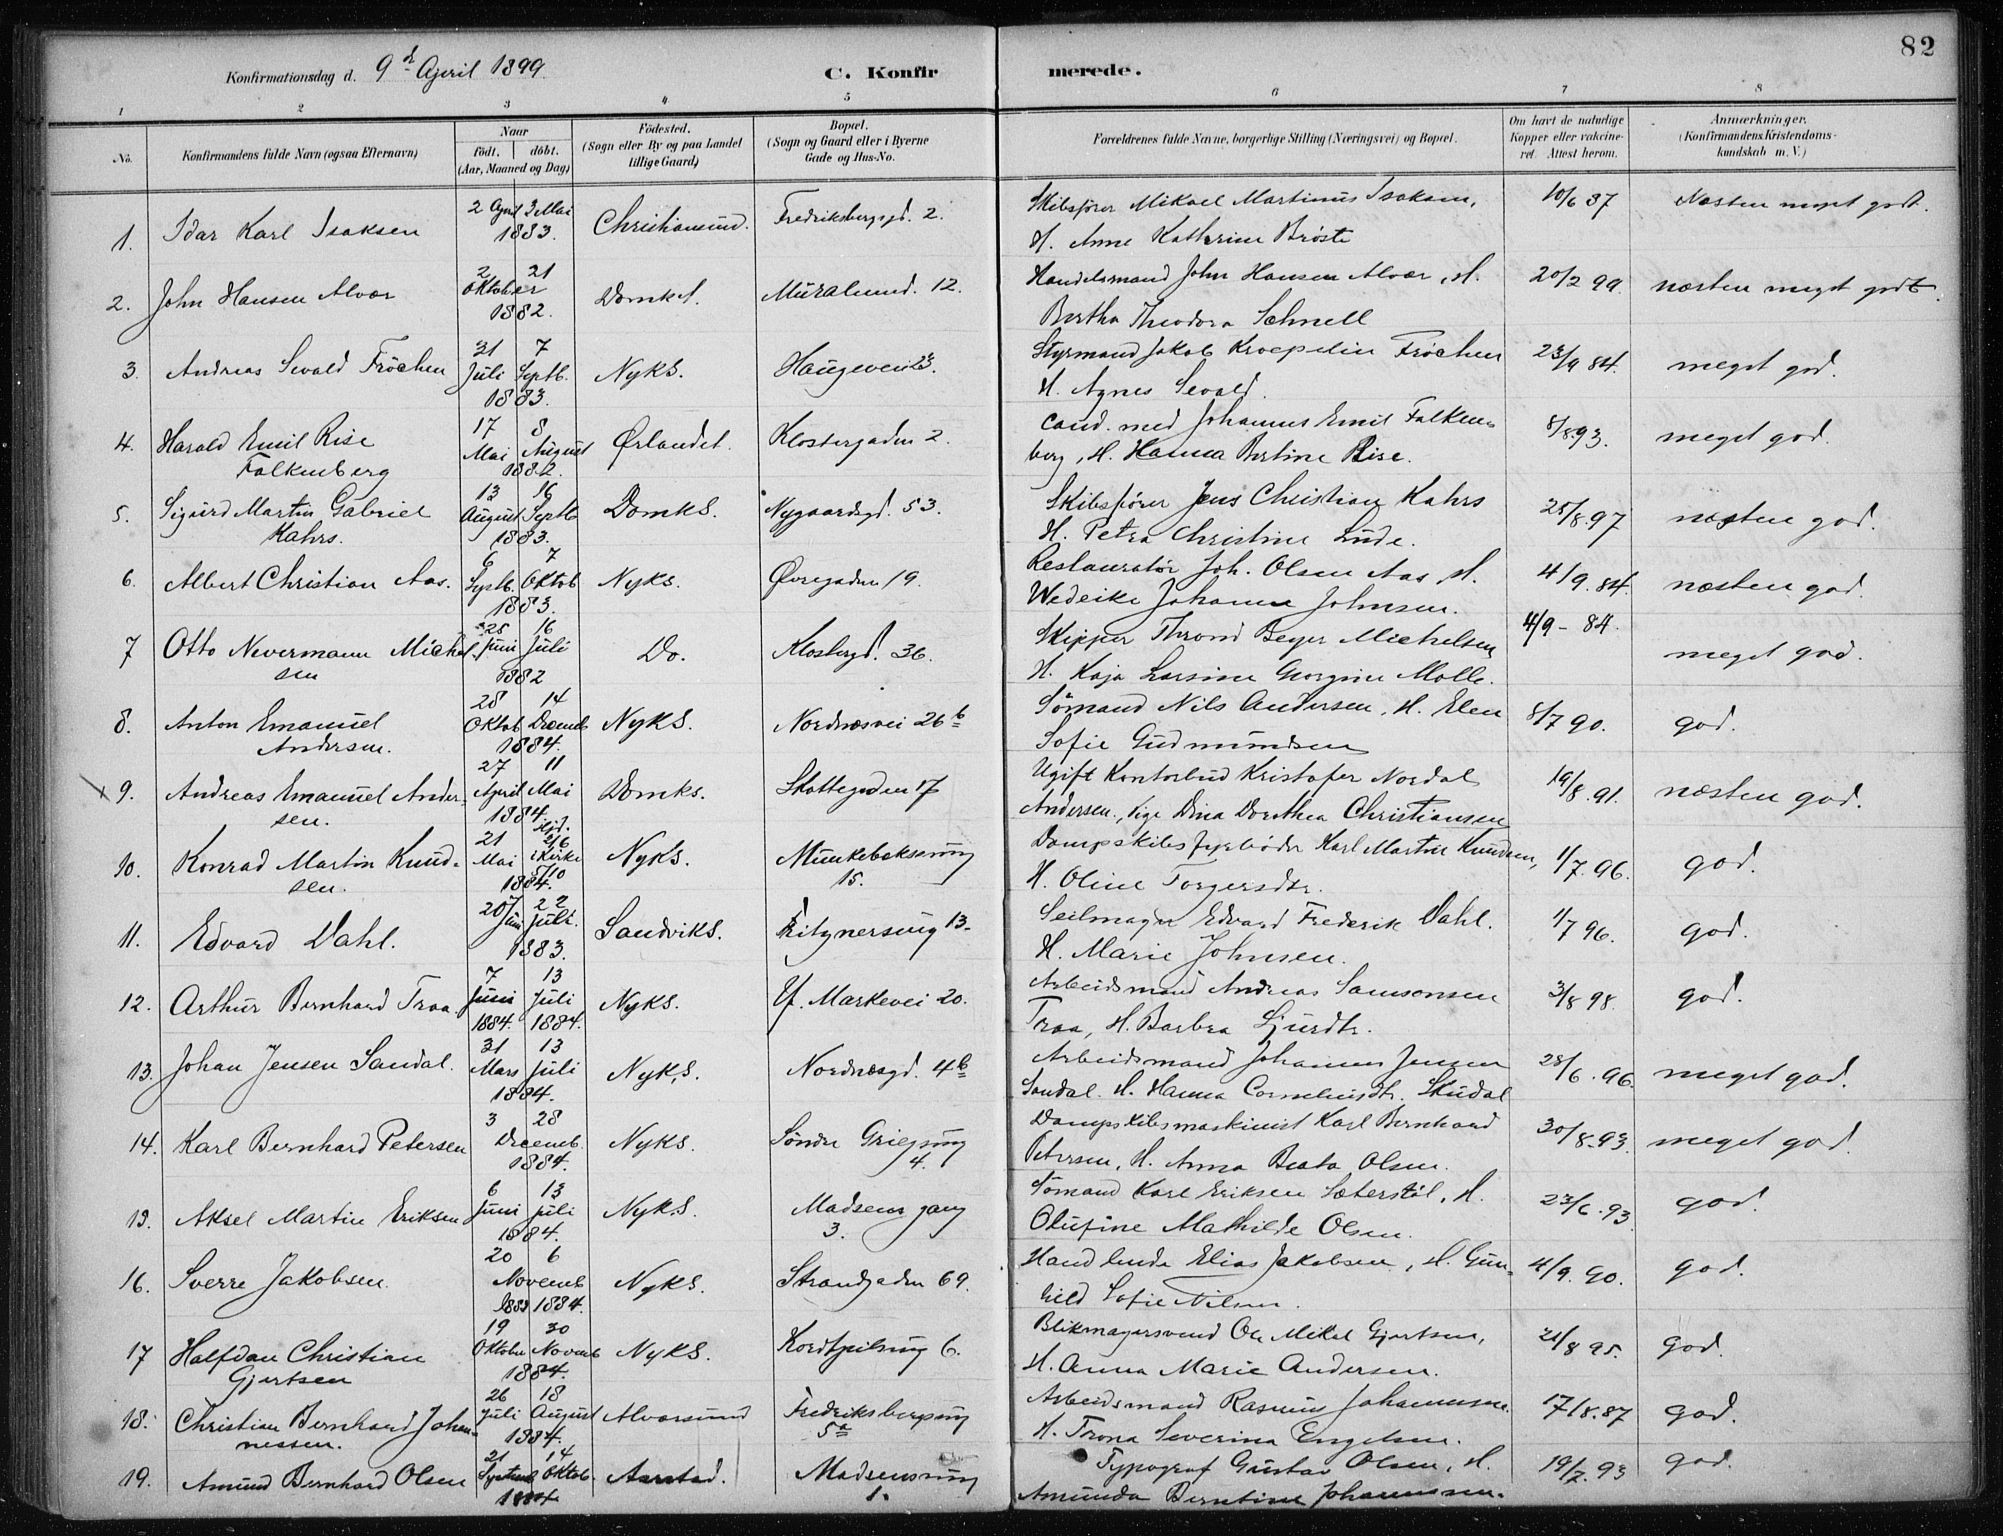 82
Konfirmationsdag d. 9d April 1899.
C. Konfirmerede.
1 2 3 4 5 6 7 8
No.
Konfirmandens fulde Navn (ogsaa Efternavn)
Naar
födt. döbt.
(Aar, Maaned og Dag)
Födested.
(Sogn eller By og paa Landet
tillige Gaard)
Bopæl.
(Sogn og Gaard eller i Byerne
Gade og Hus-No.
Forældrenes fulde Navne, borgerlige Stilling (Næringsvei) og Bopæl.
Om havt de naturlige
Kopper eller vakcine-
ret. Attest herom.
Anmærkninger.
(Konfirmandens Kristendoms-
kundskab m. V.)
1. Idar Karl Isaksen 2 April 3 Mai 1883. Christiansund. Fredriksbergsgd. 2. Skibsfører Mikael Martinus Isaksen, 10/6 87 Næsten meget godt.
H. Anne Kathrine Brøste
2. John Hansen Alvær 2 21 Oktober 1882. Domk S. Muralmend. 12. Handelsmand John Hansen Alvær, H. 20/2 99. næsten meget godt.
Bertha Theodora Schnell
3. Andreas Sevald Fröchen 31 Juli 7 Septb. 1883. Nyks. Haugeveien 23. Styrmand Jakob Kroepelin Fröchen 23/9 84. meget god.
H. Agnes Sevald.
4. Harald Emil Rise 17 Mai 8 August 1882. Ørlandet. Klostergaden 2. Cand. med Johannes Emil Falken- 8/8.93. meget god.
Falkenberg berg, H. Hanna Bertine Rise.
5. Sigurd Martin Gabriel 13 August 16 Septb 1883. Domks. Nygaardsgd. 53. Skibsfører Jens Christian Kahrs 25/8.97 næsten god.
Kahrs. H. Petra Christine Lude.
6. Albert Christian Aas. 6 Septb. 7 Oktob 1883. Nyks. Øvregaden 19. Restauratør Joh. Olsen Aas, H. 4/9.84. næsten god.
Wedeike Johanne Johnsen.
7 Otto Nevermann Michel- 25 Juni 16 Juli 1882 Do. Klostergd. 36. Skipper Thrond Beyer Michelsen 4/9 - 84. meget god.
sen H. Kaja Larsine Georgine Molle.
8. Anton Emanuel 28 Oktob 14 Decemb 1884. Nyks. Nordnæsvei 26 b Sömand Nils Andersen, H. Elen 8/7 90. god.
Andersen. Sofie Gudmundsen
x 9. Andreas Emanuel Ander- 27 April 11 Mai 1884. Domks. Skottegaden 17 Ugift Kontorbud Kristofer Nordal 19/8.91. næsten god.
sen. Andersen, Pige Dina Dorothea Christiansen
10. Konrad Martin Knud- 21 Mai Hjd. 2/6 i Kirke 5/10 1884. Nyks. Munkebeksmug 15. Dampskibsfyrbøder Karl Martin Knudsen, 1/7.96. god.
sen. H. Oline Torgersdtr.
11. Edvard Dahl. 20 Juni 22 Juli. 1883. Sandviks. Fritznersmug 13. Seilmager Edvard Frederik Dahl. 1/7 96. god.
H. Marie Johnsen.
12. Arthur Bernhard Traa. 7 Juni 1884. 13 Juli 1884. Nyks. Y. Markevei 20. Arbeidsmand Andreas Samsonsen 3/8 98. god.
Traa, H. Barbra Sjurdtr.
13. Johan Jensen Sandal. 31 Mars 13 Juli 1884. Nyk.s. Nordnæsgd. 4b Arbeidsmand Johannes Jensen 28/6.96. meget god.
Sandal. H. Hanna Corneliusdtr. Skudal
14. Karl Bernhard Petersen 3 28 Decemb. 1884. Nyks. Søndre Griegsmug 4. Dampskibsmaskinist Karl Bernhard 30/8.93. meget god.
Petersen, H. Anna Beata Olsen.
15. Aksel Martin Eriksen 6 Juni 13 Juli 1884. Nyks. Madsens gang 3. Sömand Karl Eriksen Sæterstöl, H. 23/6.93. god.
Olufine Mathilde Olsen.
16. Sverre Jakobsen 20 6 Novemb 1883 1884. Nyks. Strandgaden 69. Handlende Elias Jakobsen, H. Gun- 4/9.90. god.
hild Sofie Nilsen.
17 Halfdan Christian 19 Oktober 30 Novemb 1884. Nyks. Kordtpilsmug 6. Blikmagersvend Ole Mikal Gjertsen, 21/8 95. god.
Gjertsen H. Anna Marie Andersen.
18. Christian Bernhard Johan- 26 Juli 18 August 1884. Alversund Fredriksbergsmug 5a Arbeidsmand Rasmus Johannessen. 17/8.87 god.
nessen. H. Trona Severina Engelsen.
19. Amund Bernhard Olsen 21 Septemb 14 Oktob. 1884 Aarstad. Madsensmug 1. Typograf Gustav Olsen, H. 19/7.93 god.
Amunda Berntine Johannessen.